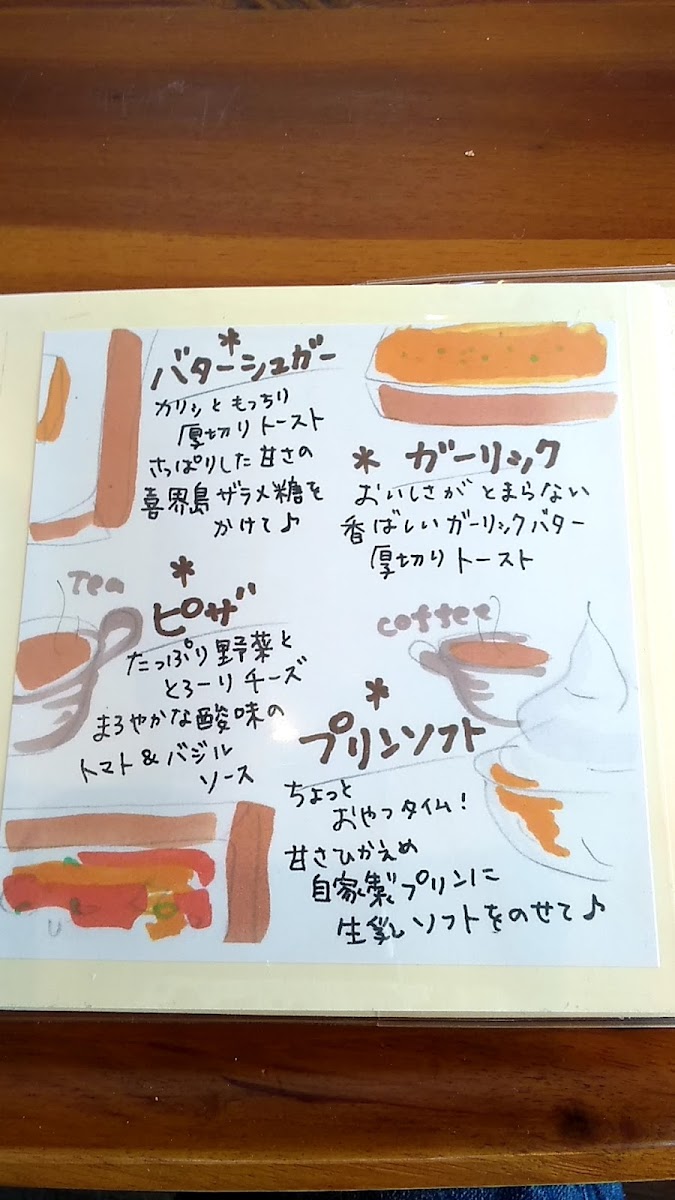 *
バターシュガー
カリッと もっちり
厚切りトースト
さっぱりした甘さの
喜界島ザラメ糖を
かけて♪
* ガーリック
おいしさが とまらない
香ばしいガーリックバター
厚切りトースト
Tea
*
ピザ
たっぷり野菜と
とろーりチーズ
まろやかな酸味の
トマト&バジル
ソース
coffee
*
プリンソフト
ちょっと
おやつタイム!
甘さひかえめ
自家製プリンに
生乳ソフトをのせて♪